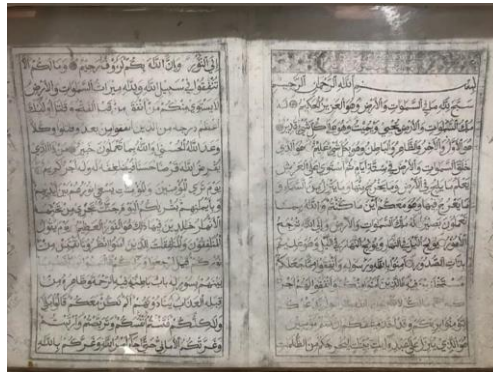 بسم الله الرحمن الرحيم
سبح لله ما في السموات والأرض وهو العزيز الحكيم له
ملك السموات والأرض يحيي ويميت وهو على كل شيء قدير
هو الأول والآخر والظاهر والباطن وهو بكل شيء عليم هو الذي
خلق السموات والأرض في ستة أيام ثم استوى على العرش
يعلم ما يلج في الأرض وما يخرج منها وما ينزل من السماء و
ما يعرج فيها وهو معكم أين ما كنتم والله بما
تعملون بصير له ملك السموات والأرض وإلى الله ترجع
الأمور يولج الليل في النهار ويولج النهار في الليل وهو عليم
بذات الصدور آمنوا بالله ورسوله وأنفقوا مما جعلكم
مستخلفين فيه فالذين آمنوا منكم
لتؤمنوا بربكم وقد أخذ ميثاقكم إن كنتم مؤمنين
هو الذي ينزل على عبده آيات بينات ليخرجكم من الظلمات
إلى النور وإن الله بكم لرؤف رحيم وما لكم ألا
تنفقوا في سبيل الله ولله ميراث السموات والأرض
لا يستوي منكم من أنفق من قبل الفتح وقاتل أولئك
أعظم درجة من الذين أنفقوا من بعد وقاتلوا وكلا
وعد الله الحسنى والله بما تعملون خبير من ذا الذي
يقرض الله قرضا حسنا فيضاعفه له وله أجر كريم
يوم ترى المؤمنين والمؤمنات يسعى نورهم بين أيديهم
وبأيمانهم بشراكم اليوم جنات تجري من تحتها
الأنهار خالدين فيها ذلك هو الفوز العظيم يوم يقول
المنافقون والمنافقات للذين آمنوا انظرونا نقتبس من
نوركم قيل ارجعوا
بينهم بسور له باب باطنه فيه الرحمة وظاهره من
قبله العذاب ينادونهم ألم نكن معكم قالوا بلى
ولكنكم فتنتم أنفسكم وتربصتم وارتبتم
وغرتكم الأماني حتى جاء أمر الله وغركم بالله